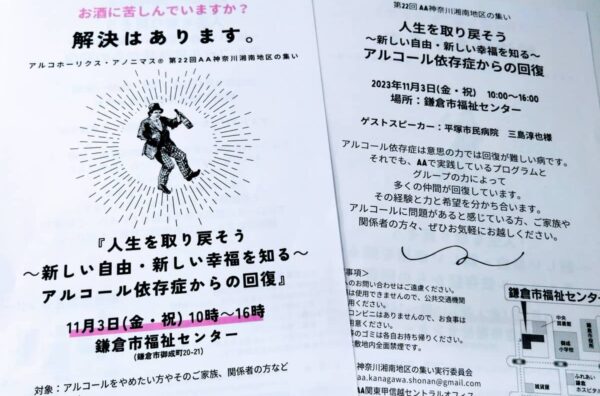 お酒に苦しんでいますか？
解決はあります。
アルコホーリクス・アノニマス® 第22回AA神奈川湘南地区の集い
『人生を取り戻そう
～新しい自由・新しい幸福を知る～
アルコール依存症からの回復』
11月3日(金・祝) 10時～16時
鎌倉市福祉センター
(鎌倉市御成町20-21)
対象：アルコールをやめたい方やそのご家族、関係者の方など
第22回 AA神奈川湘南地区の集い
人生を取り戻そう
～新しい自由・新しい幸福を知る～
アルコール依存症からの回復
2023年11月3日(金・祝) 10:00～16:00
場所：鎌倉市福祉センター
ゲストスピーカー：平塚市民病院 三島淳也様
アルコール依存症は意思の力では回復が難しい病です。
それでも、AAで実践しているプログラムと
グループの力によって
多くの仲間が回復しています。
その経験と力と希望を分かち合います。
アルコールに問題があると感じている方、ご家族や
関係者の方々、ぜひお気軽にお越しください。
事項＞
へのお問い合わせはご遠慮ください。
は使用できませんので、公共交通機関
用ください。
コンビニはありませんので、お食事は
用意ください。
等のゴミは各自お持ち帰りください。
敷地内全面禁煙です。
神奈川湘南地区の集い実行委員会
aa.kanagawa.shonan@gmail.com
AA関東甲信越セントラルオフィス
鎌倉市福祉センター
中央
図書館
御成
小学校
鎌倉
市役所
雑貨屋
ふれあい
鎌倉
ホスピタル